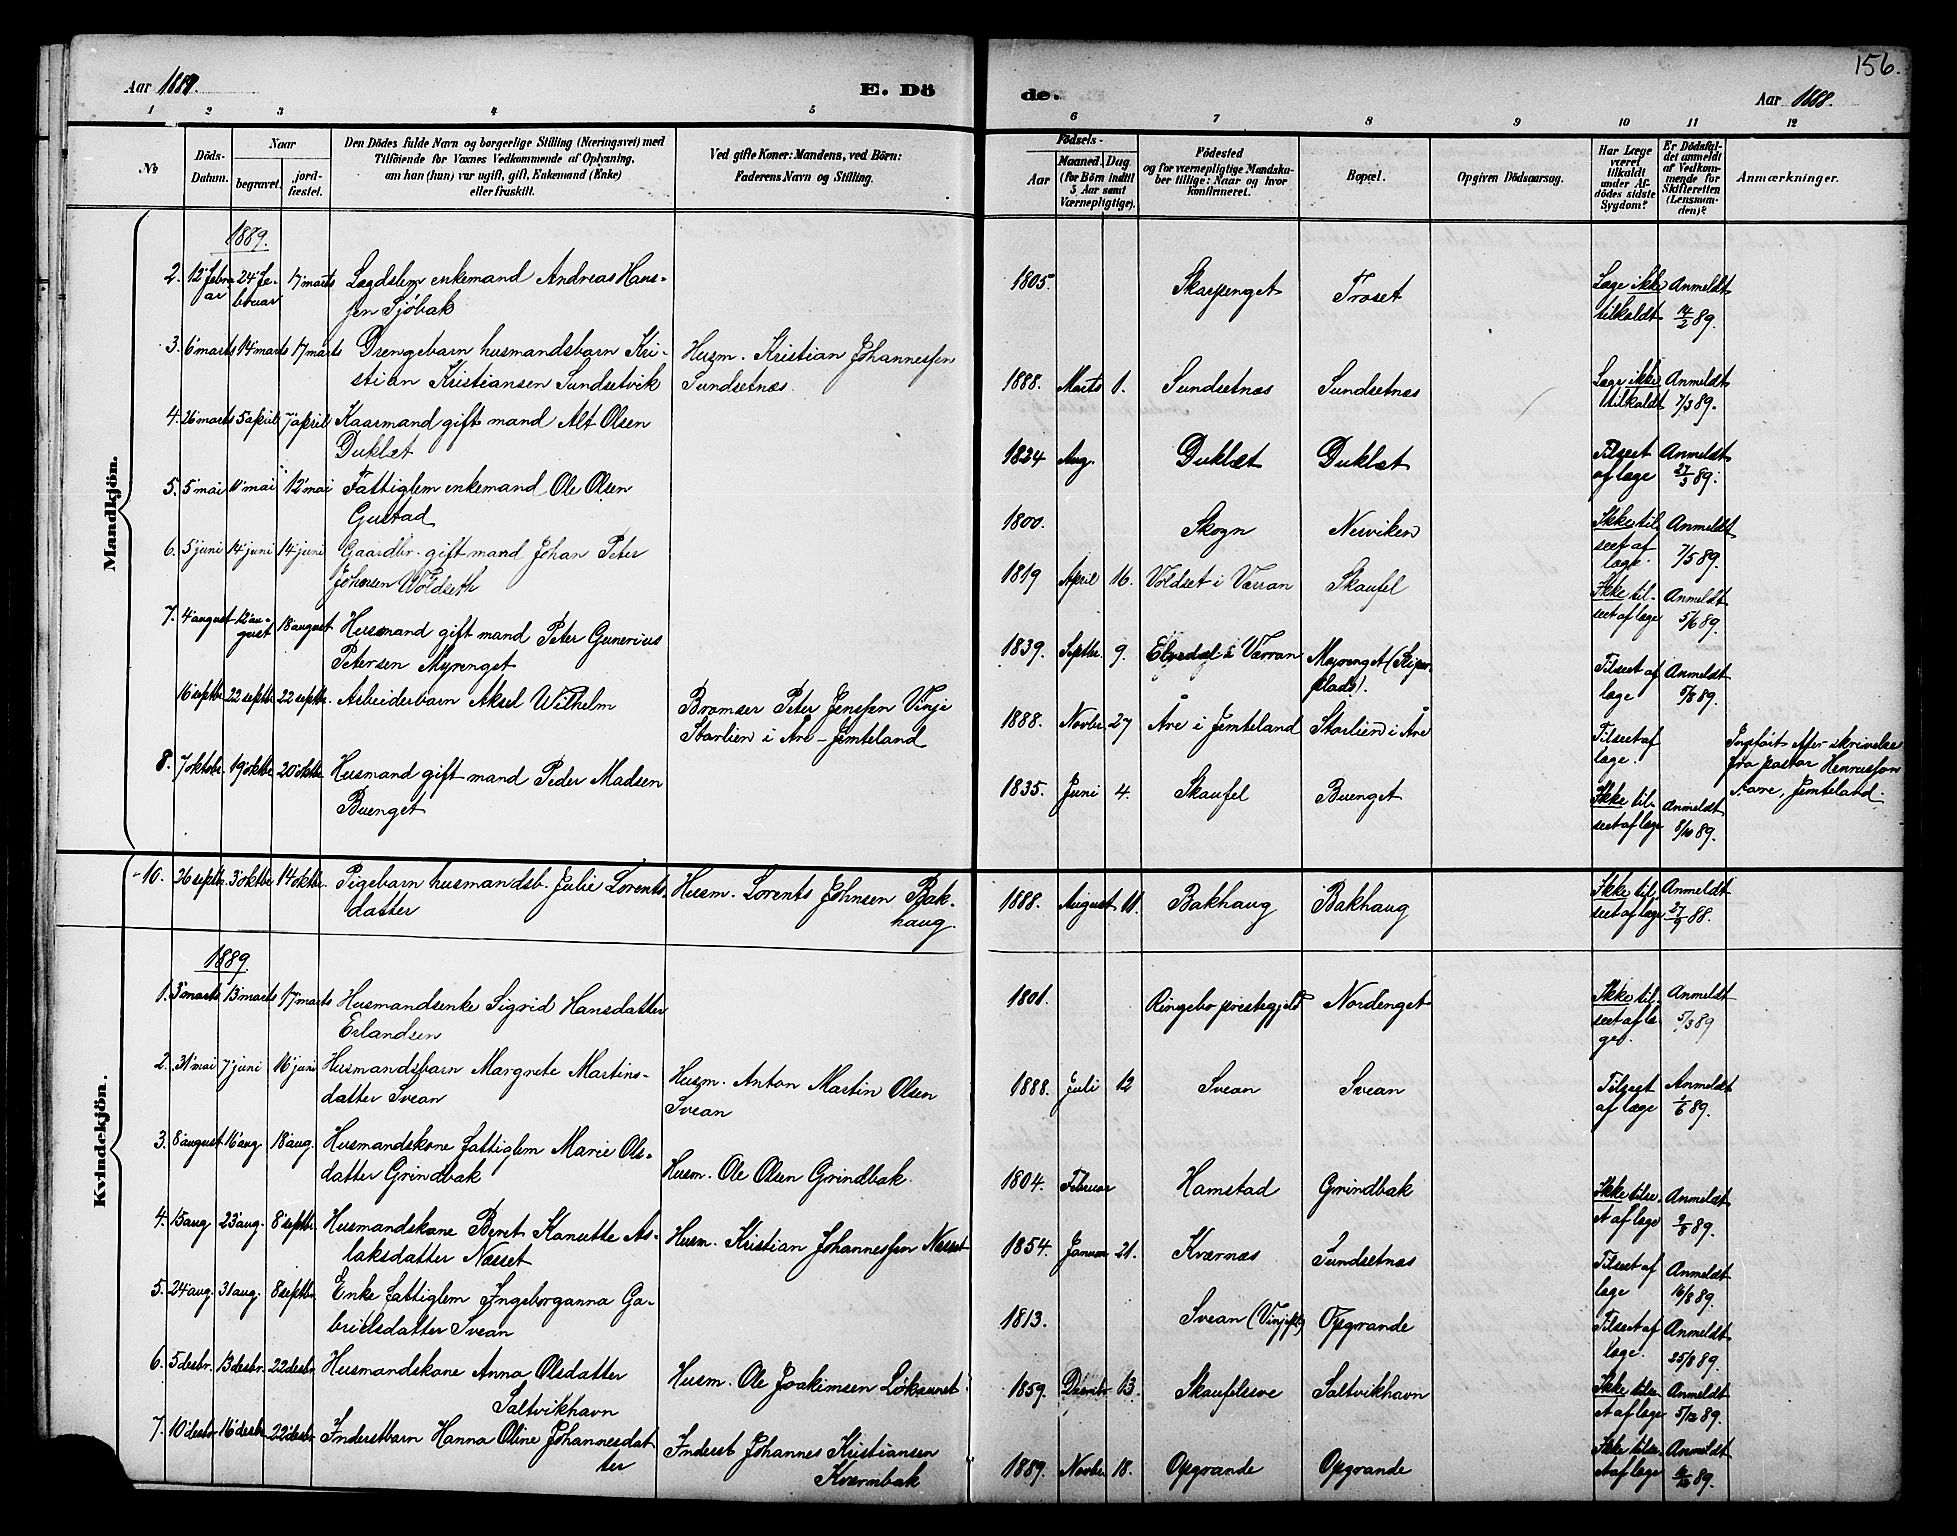 156.
Aar 1889. E. Döde. Aar 1888.
1 2 3 4 5 6 7 8 9 10 11 12
No
Döds-Datum.
Naar
begravet.
jordfæstet.
Den Dödes fulde Navn og borgerlige Stilling (Næringsvei) med
Tilföiende for Voxnes Vedkommende af Oplysning,
om han (hun) var ugift, gift, Enkemand (Enke)
eller fraskilt.
Ved gifte Koner: Mandens, ved Börn:
Faderens Navn og Stilling.
Födsels-
Aar
Maaned. Dag.
(for Börn indtil
5 Aar samt
Værnepligtige).
Födested
og for værnepligtige Mandska-
ber tillige: Naar og hvor
konfirmeret.
Bopæl.
Opgiven Dödsaarsag.
Har Læge
været
tilkaldt
under Af-
dödes sidste
Sygdom?
Er Dödsfal-
det anmeldt
af Vedkom-
mende for
Skifteretten
(Lensman-
den)?
Anmærkninger.
Mandkjön.
1889.
2. 12' februar 24' februar 17' marts Lægdslem enkemand Andreas Hans-
sen Sjöbak 1805. Skarpenget Troset Læge ikke tilkaldt Anmeldt 14/2 89.
3. 6' marts 14' marts 17' marts Drengebarn husmandsbarn Kri-
stian Kristiansen Sundsetvik Husm. Kristian Johannessen
Sundsetnæs. 1888. Marts 1. Sundsetnæs Sundsetnæs Læge ikke tilkaldt Anmeldt 7/3 89.
4. 26 marts 5' april 7' april Kaarmand gift mand Alt Olsen
Duklæt 1824 Aug. Duklæt Duklæt Tilseet af læge Anmeldt 27/3 89.
5. 5' mai 11' mai 12' mai Fattiglem enkemand Ole Olsen
Gustad 1800. Skogn Nesviken Ikke tilseet af læge. Anmeldt 7/5 89.
6. 5' juni 14' juni 14' juni Gaardbr. gift mand Johan Peter
Johnsen Woldseth 1819 April 16. Voldset i Værran Skaufel Ikke tilseet af læge Anmeldt 5/6 89.
7. 4' august 12' august 18' august Husmand gift mand Peter Gunerius
Petersen Myrenget 1839. Septbr. 9. Elvedal i Værran Myrenget Tilseet af læge Anmeldt 5/8 89.
16' septbr 22 septbr 22 septbr. Arbeiderbarn Aksel Wilhelm Bromser Peter Jenssen Vinje
Storlien i Åre – Jemteland 1888. Novbr 27 Åre i Jemteland Storlien i Åre Tilseet af læge. Indfört efter skrivelse
fra pastor
Aare, Jemteland.
8. 7' oktobr 19' oktbr 20' oktbr. Husmand gift mand Peder Madsen
Buenget 1835. Juni 4. Skaufel Buenget Ikke tilseet af læge Anmeldt 8/10 89.
Kvindekjön.
10. 26 septbr. 3' oktbr 14' oktbr. Pigebarn husmandsb. Julie Lorents-
datter Husm. Lorents Johnsen Bak-
haug. 1888. August 11. Bakhaug Bakhaug Ikke tilseet af læge Anmeldt 27/9 88.
1889.
1. 3' marts 13' marts 17' marts Husmandsenke Sigrid Hansdatter
Erlandsen 1801. Ringebo prestegjeld Nordenget Ikke tilseet af læge. Anmeldt 5/3 89
2. 31' mai 7' juni 16' juni Husmandsbarn Margrete Martins-
datter Svean Husm. Anton Martin Olsen
Svean 1888. Juli 12 Svean Svean Tilseet af læge Anmeldt 1/6 89.
3. 8' august 16' aug 18' aug. Husmandskone fattiglem Marie Ols-
datter Grindbak Husm. Ole Olsen Grindbak. 1804. Februar Hamstad Grindbak Ikke tilseet af læge Anmeldt 9/8 89.
4. 15 aug 23' aug. 8' septbr. Husmandskone Beret Kanutte As-
laksdatter Næsset Husm. Kristian Johannessen Næsset 1854. Januar 21. Kværnæs Sundsetnæs Tilseet af læge Anmeldt 16/8 89.
5. 24' aug. 31 aug. 8 septbr. Enke fattiglem Ingeborganna Ga-
brielsdatter Svean 1813. Svean (Vinje) Opgrande Tilseet af læge. Anmeldt 25/8 89.
6. 5 desbr. 13 desbr. 22 desbr. Husmandskone Anna Olsdatter
Saltvikhavn Husm. Ole Joakimsen Löksunet 1859. Decmbr 13. Skaufelsve Saltvikhavn Ikke tilseet af læge Anmeldt 5/12 89.
7. 10' desbr 16' desbr 22' desbr. Inderstbarn Hanna Oline Johannesdat
ter Inderst Johannes Kristiansen
Kværnbak 1889. Novbr. 18. Opgrande Opgrande Ikke tilseet af læge Anmeldt 89.